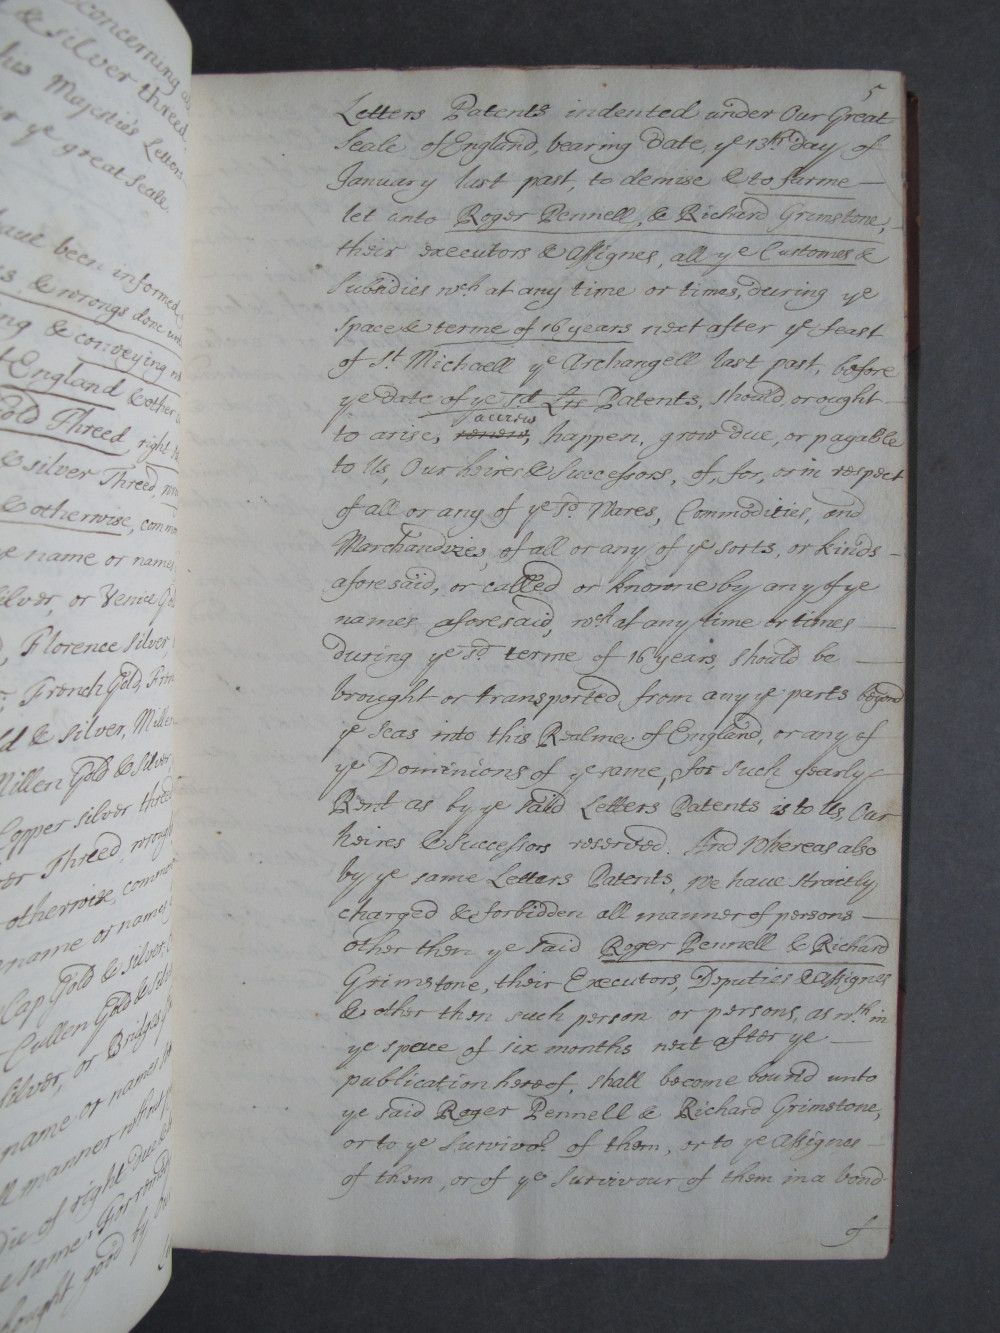 concerning
& silver threed
his Majesties Letters
ye great Seale
have been informed,
& wrongs done unto
& conveying
England & other
Gold Threed, right
& silver Threed,
& otherwise, common
ye name or names
Silver, or Venice Gold
Florence Silver
French Gold, French
& Silver, Millen
Millen Gold & Silver,
Copper silver threed
Threed, wrought
otherwise, common
name or names
Cap Gold & Silver,
Cullen Gold & Silver
Silver, or Bridges
name or names
manner
of right due
same: For
thought good by
5
Letters Patents indented under Our Great
Seale of England, bearing date ye 13th day of
January last past, to demise & to farme —
let unto Roger Pennell, & Richard Grimstone,
their executors & Assignes, all ye Customes &
Subsidies wch at any time or times, during ye
space & terme of 16 years next after ye feast
of St Michaell ye Archangell last past, before
ye date of ye sd Lrs Patents, should, or ought
accrew
to arise, renew, happen, grow due, or payable
to Us, Our heires & Successors, of, for, or in respect
of all or any of ye sd. Wares, Commodities, and
Marchandizes, of all or any of ye sorts, or kinds —
aforesaid, or called or knowne by any of ye
names aforesaid, wch at any time or times —
during ye sd terme of 16 years, should be —
brought or transported from any ye parts beyond
ye Seas into this Realme of England, or any of
ye Dominions of ye same, for such yearly
Rent as by ye said Letters Patents is to Us, Our
heires & Successors reserved. And Whereas also
by ye same Letters Patents, We have strictly
charged & forbidden all manner of persons —
other then ye said Roger Pennell & Richard
Grimstone, their Executors, Deputies & Assignes
& other then such person or persons, as wth in
ye space of six months next after ye —
publication hereof, shall become bound unto
ye said Roger Pennell & Richard Grimstone,
or to ye survivor of them, or to ye Assignes —
of them, or of ye Survivour of them in a bond
of